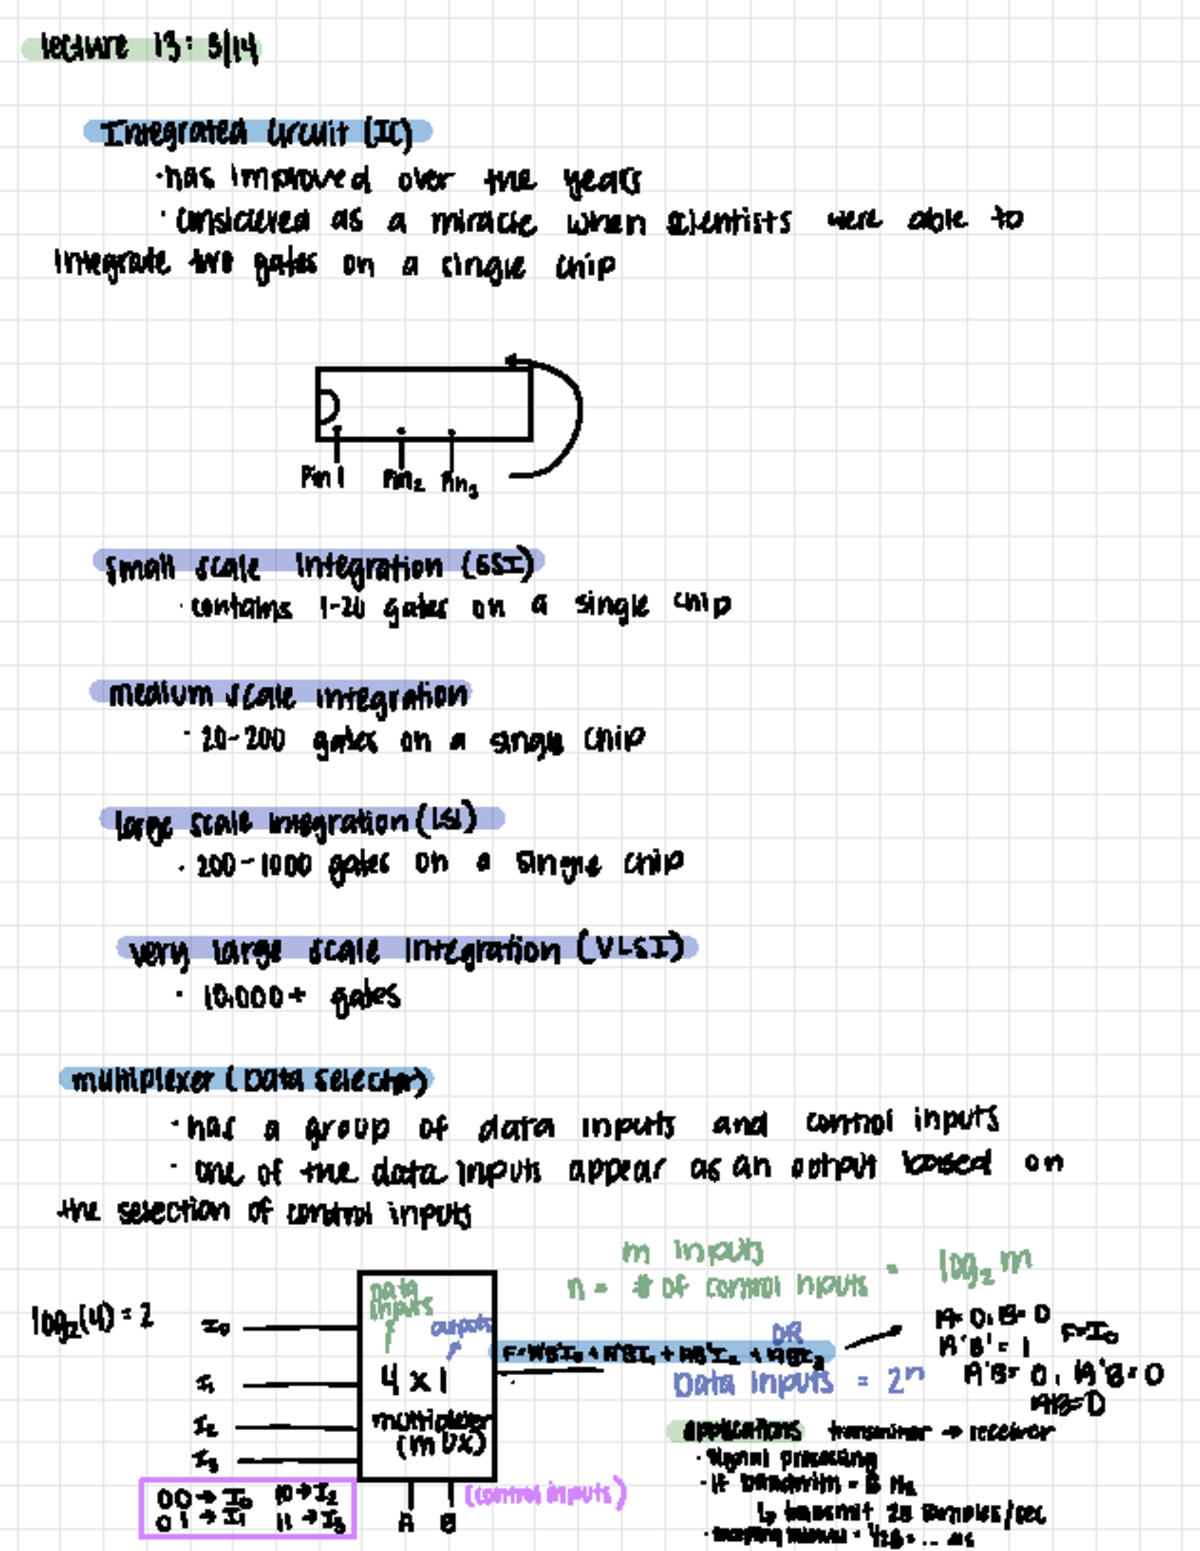 lecture 13: 3/14
Integrated Circuit (IC)
·has improved over the years
·considered as a miracle when scientists were able to
integrate two gates on a single chip
Pin 1 Pin₂ Pin₃
small scale integration (SSI)
·contains 1-20 gates on a single chip
medium scale integration
·20-200 gates on a single chip
large scale integration (LSI)
·200-1000 gates on a single chip
very large scale integration (VLSI)
·10,000+ gates
multiplexer (Data Selector)
·has a group of data inputs and control inputs
·one of the data inputs appear as an output based on
the selection of control inputs
m inputs
n = # of control inputs = log₂ m
log₂(4) = 2
I₀
I₁
I₂
I₃
Data
inputs
outputs
4 x 1
multiplexer
(MUX)
A B
(control inputs)
00 → I₀ 10 → I₂
01 → I₁ 11 → I₃
F = A'B'I₀ + A'BI₁ + AB'I₂ + ABI₃
OR
Data inputs = 2ⁿ
A = 0, B = 0
A'B' = 1 F = I₀
A'B = 0, AB' = 0
AB = 0
applications transmitter → receiver
·signal processing
·If bandwidth = B Hz
↳ transmit 2B samples/sec